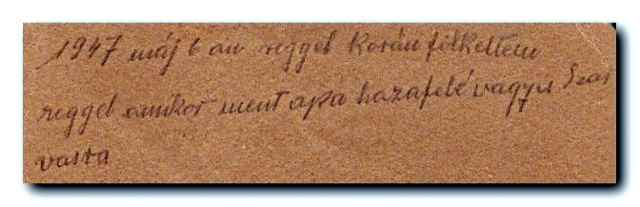 1947 máj 6 án reggel korán fölkeltem
reggel amikor ment apa hazafelé vagyis Szar
vasra